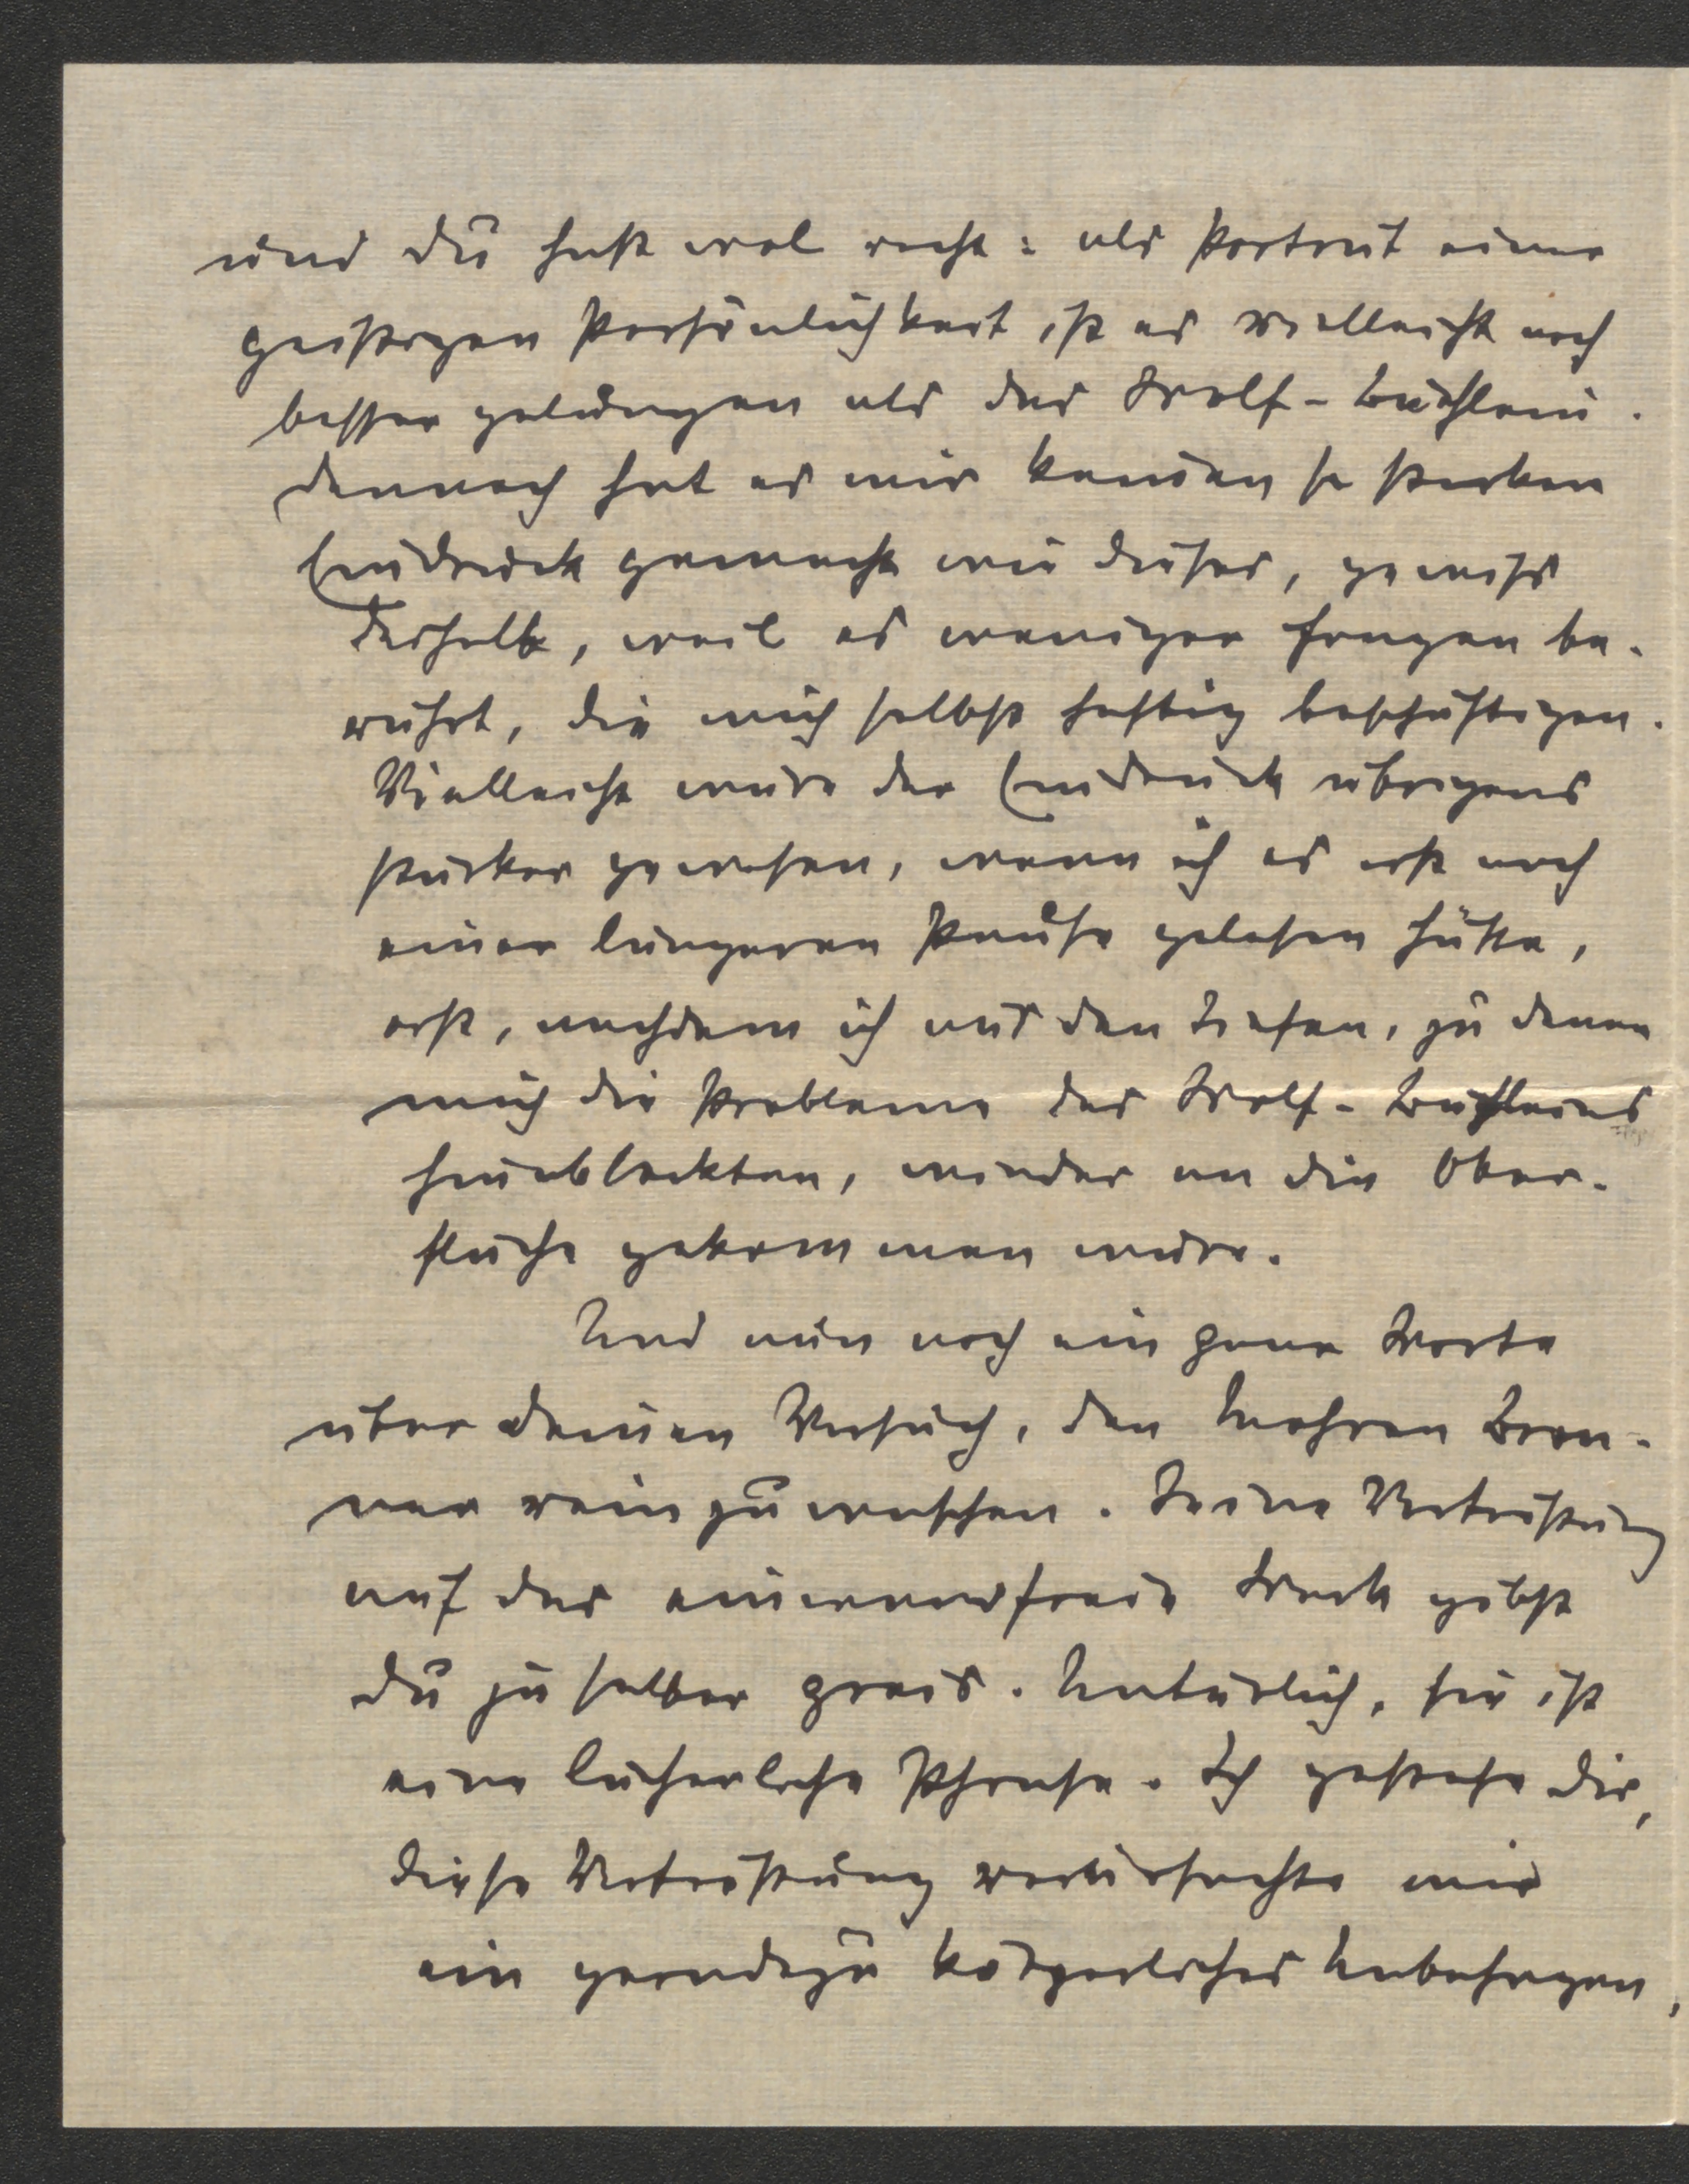 und du hast wol recht: als Porträt einer
geistigen Persönlichkeit ist es vielleicht noch
besser gelungen als das Wolf-Büchlein.
Dennoch hat es mir keinen so starken
Eindruck gemacht wie dieses, gewiss
deshalb, weil es weniger Fragen be-
rührt, die mich selbst heftig beschäftigen.
Vielleicht wäre der Eindruck übrigens
stärker gewesen, wenn ich es erst nach
einer längeren Pause gelesen hätte,
erst, nachdem ich aus den Tiefen, zu denen
mich die Probleme des Wolf-Büchleins
hinablockten, wieder an die Ober-
fläche gekommen wäre.
Und nun noch ein paar Worte
über deinen Versuch, den Mohren Bron-
nen rein zu waschen. Seine Vertröstung
auf das einwandfreie Werk gibst
du ja selber preis. Natürlich, sie ist
eine lächerliche Phrase. Ich gestehe dir,
diese Vertröstung verursachte mir
ein geradezu körperliches Unbehagen,